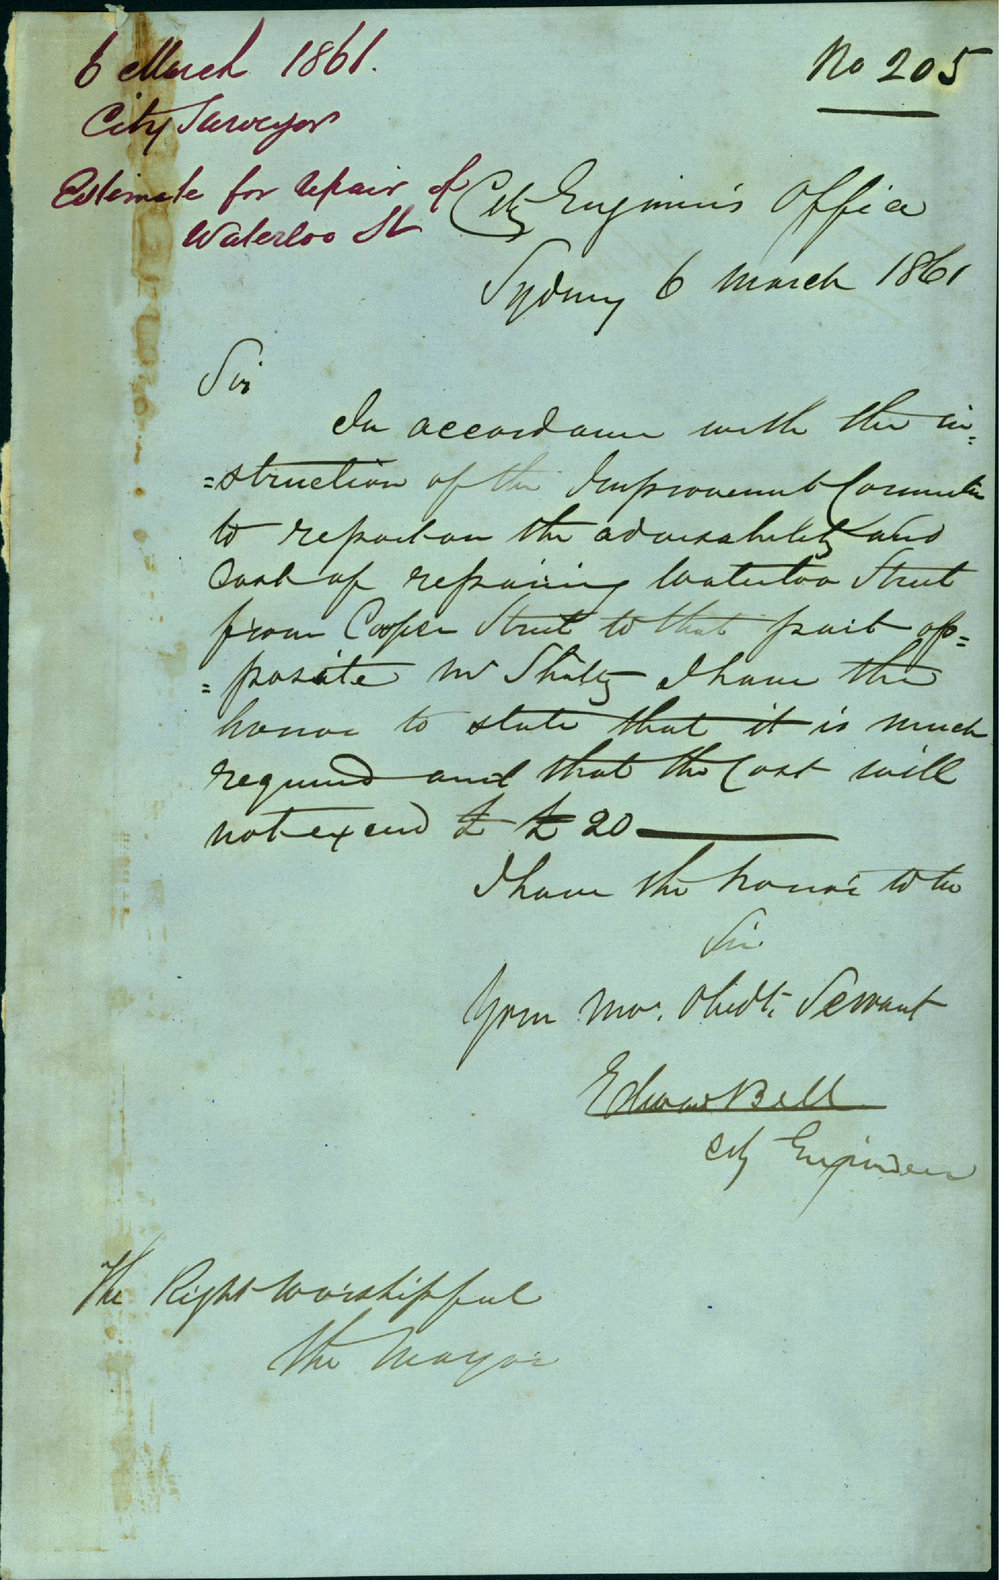 6 March 1861.
City Surveyor
Estimate for repair of
Waterloo St
No 205
City Engineer's Office
Sydney 6 March 1861
Sir
In accordance with the in=
=struction of the Improvement Committee
to report on the advisability and
Cost of repairing Waterloo Street
from Cooper Street to that part op=
=posite Mr I have the
honor to state that it is much
required and that the Cost will
not exceed £ £20
I have the honor to be
Sir
Your Mo. Obedt. Servant
Edward Bell
City Engineer
The Right Worshipful
The Mayor